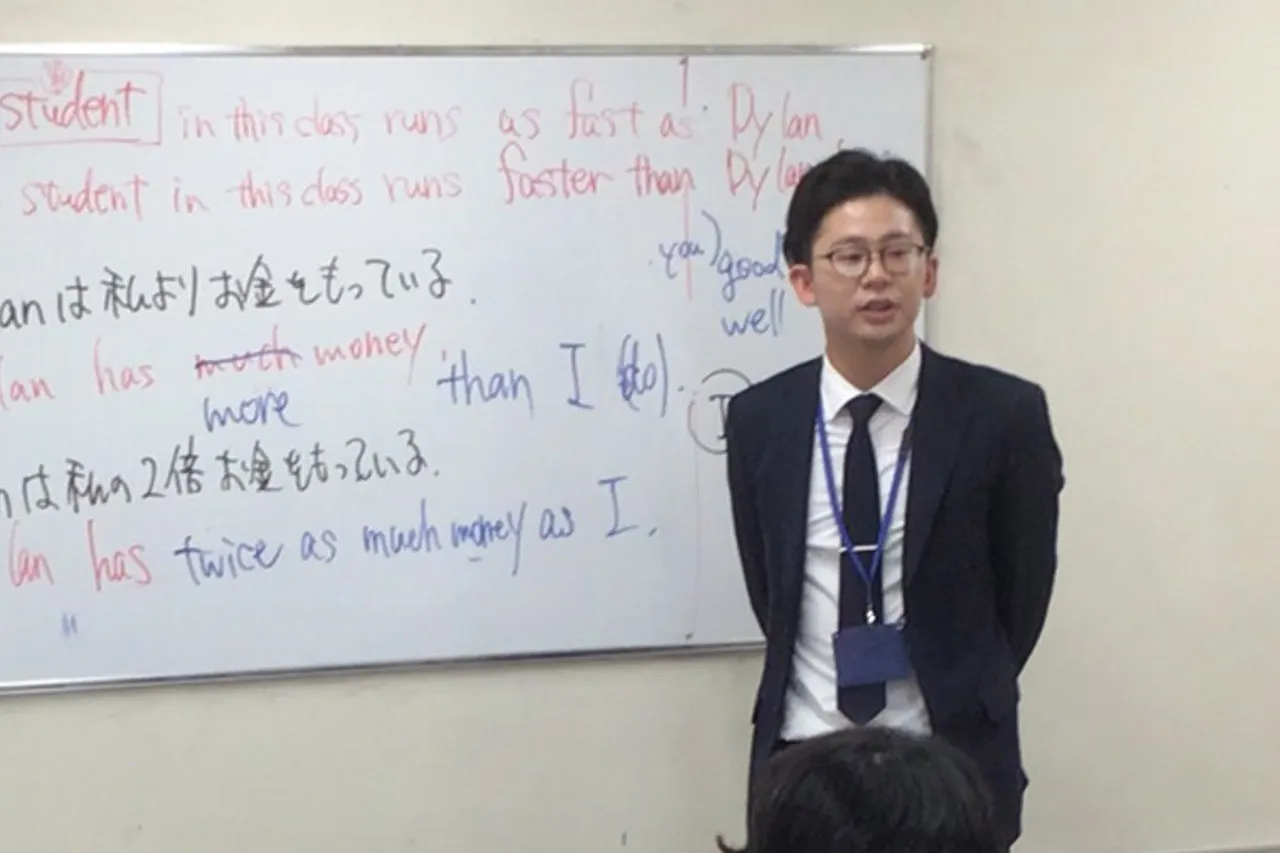 student in this class runs as fast as Dylan
student in this class runs faster than Dylan
anは私よりお金をもっている.
lan has much money than I (do).
more
you) good
well
I
nは私の2倍お金をもっている.
lan has twice as much money as I.
"